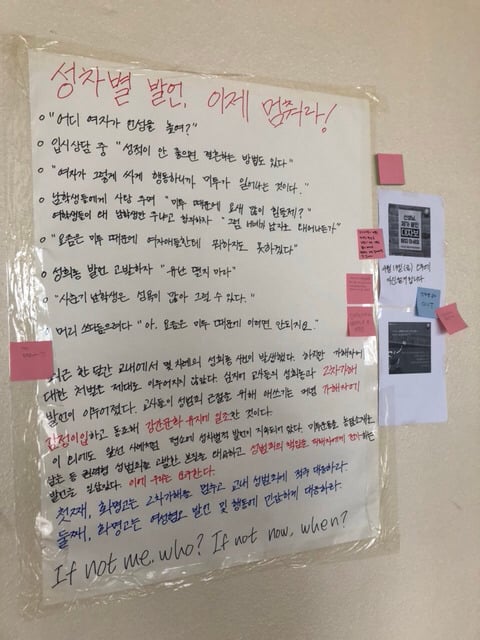 성차별 발언, 이제 멈춰라!
"어디 여자가 언성을 높여?"
입시상담 중 "성적이 안 좋으면 결혼하는 방법도 있다"
"여자가 그렇게 싸게 행동하니까 미투가 일어나는 것이다."
남학생들에게 사탕 주며 "미투 때문에 요새 많이 힘들제?"
여학생들이 왜 남학생만 주냐고 항의하자 "그럼 너네가 남자로 태어나든가"
"요즘은 미투 때문에 여자애들한테 뭐하지도 못하겠다"
성희롱 발언 고발하자 "유난 떨지 마라"
"사춘기 남학생은 성욕이 많아 그럴 수 있다."
머리 쓰다듬으려다 "아, 요즘은 미투 때문에 이러면 안되지요."
최근 한 달간 교내에서 몇 차례의 성희롱 사건이 발생했다. 하지만 가해자에
대한 처벌은 제대로 이루어지지 않았다. 심지어 교사들의 성희롱과 2차가해
발언이 이루어졌다. 교사들이 성범죄 근절을 위해 애쓰기는 커녕 가해자에
감정이입하고 동조해 강간문화 유지에 일조한 것이다.
이 외에도 앞선 사례처럼 평소에 성차별적 발언이 지속되고 있다. 미투운동을
삼는 등 권력형 성범죄를 고발한 운동을 대하고 성범죄의 책임을 피해자에게 전가하는
발언을 일삼았다. 이에 우리는 요구한다.
첫째, 화명고는 2차가해를 멈추고 교내 성범죄에 적극 대응하라.
둘째, 화명고는 여성혐오 발언 및 행동에 민감하게 대응하라.
If not me, who? If not now, when?